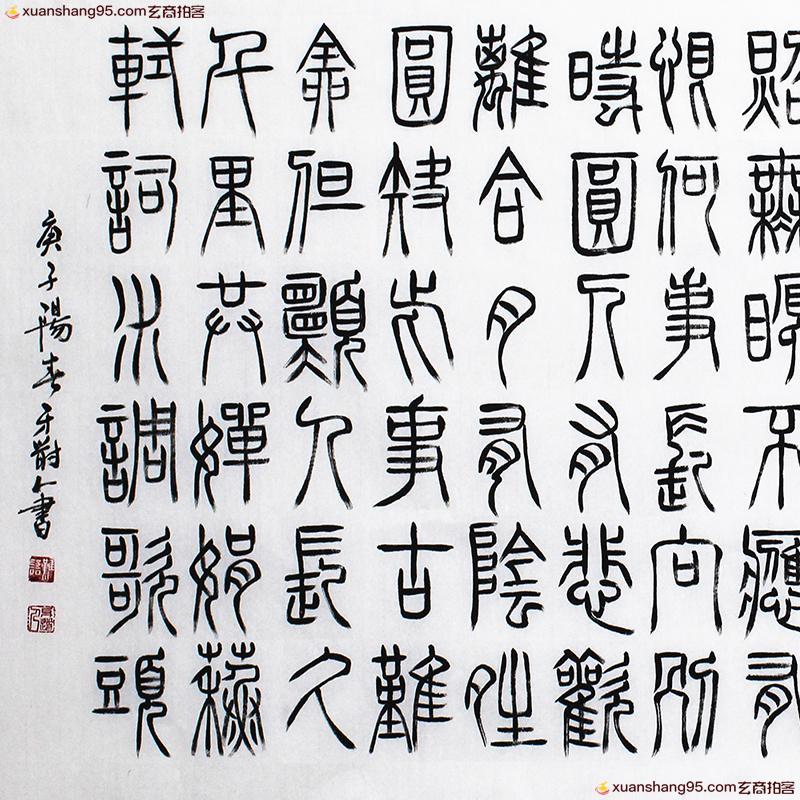 xuanshang95.com玄商拍客
xuanshang95.com玄商拍客
照無眠不應有
恨何事長向別
時圓人有悲歡
離合月有陰晴
圓缺此事古難
全但願人長久
千里共嬋娟蘇
軾詞水調歌頭
庚子陽春書
xuanshang95.com玄商拍客